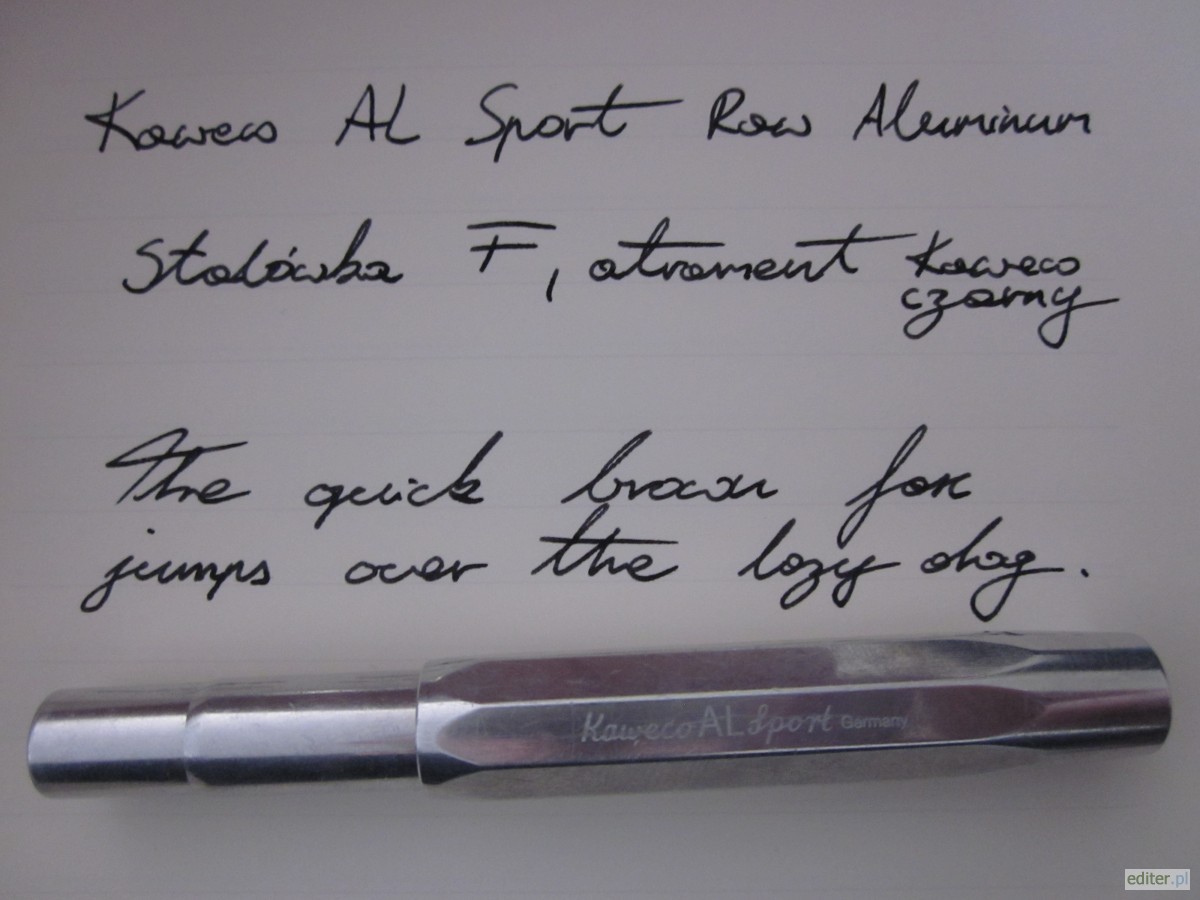 Kaweco AL Sport Raw Aluminum
Stalówka F, atrament Kaweco
czarny
The quick brown fox
jumps over the lazy dog.
Kaweco AL Sport Germany
editer.pl